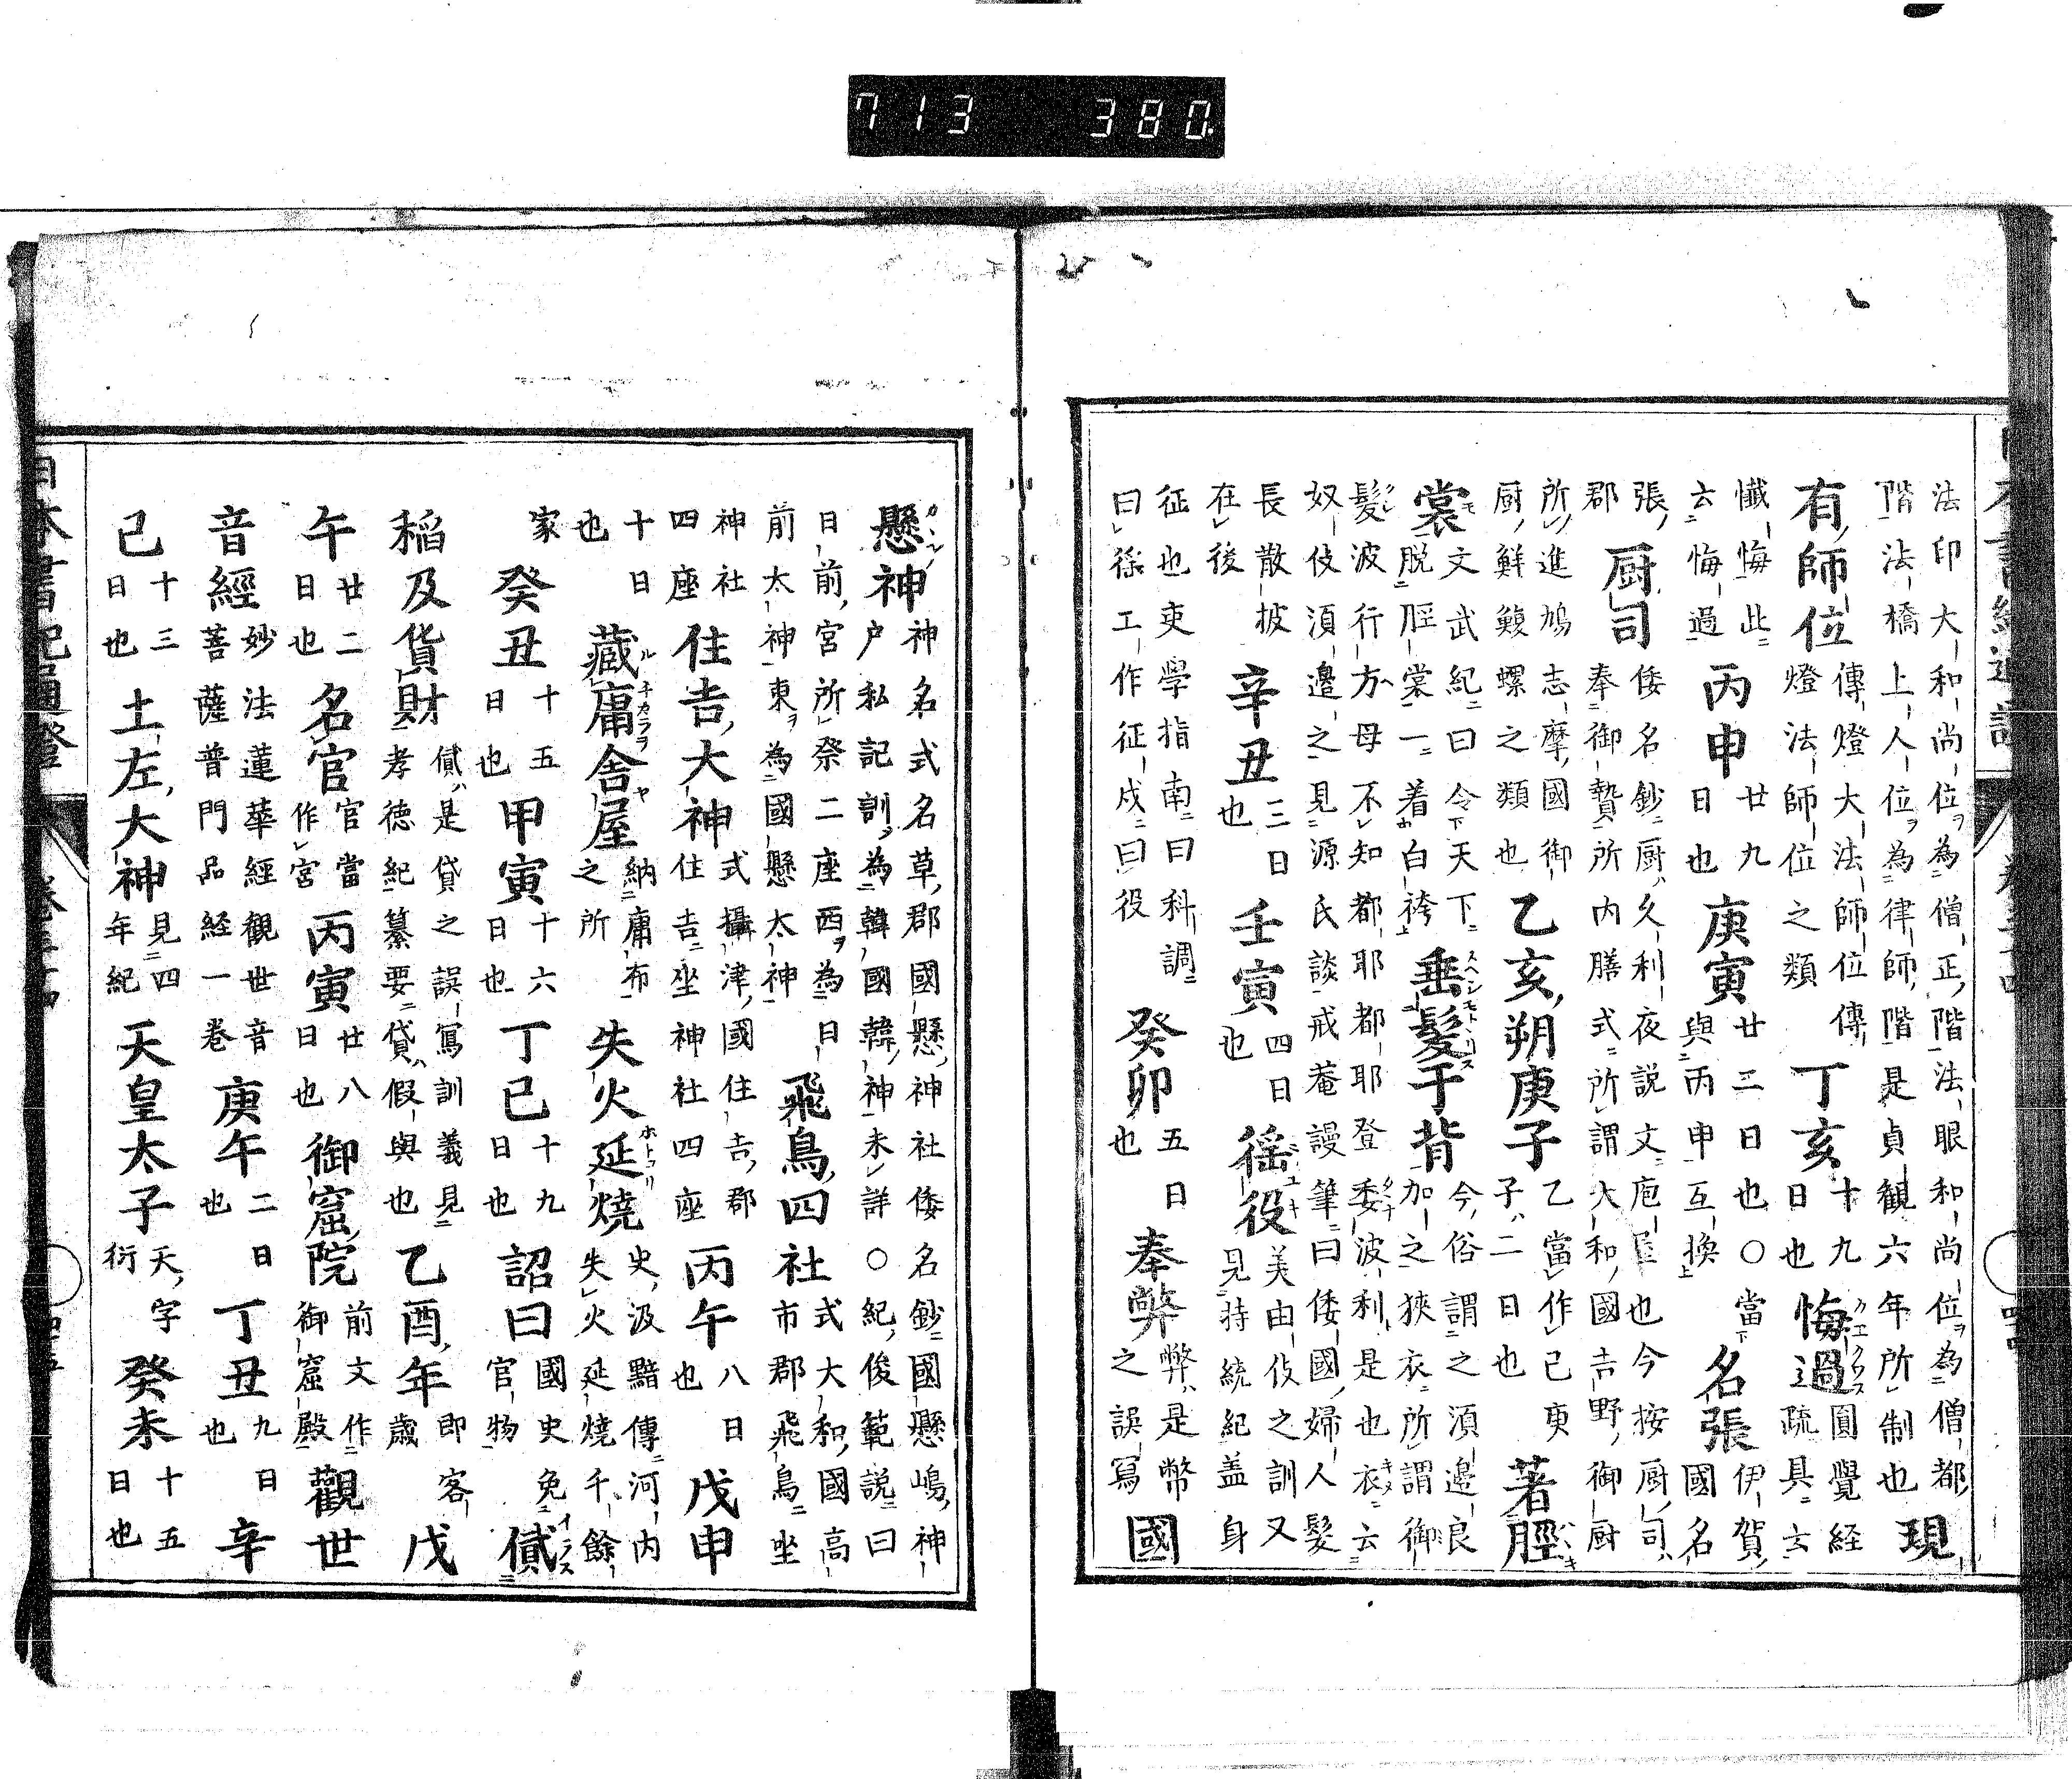 法印大和尚位為僧正階法眼和尚位為僧都階法橋上人位為律師階是貞観六年所制也現
有師位傳燈大法師位傳燈法師位之類丁亥十九日也悔過圓覺経疏具云
懺悔此云悔過丙申廿九日也庚寅廿三日也○當與丙申互換名張伊賀國名
張郡厨司倭名鈔厨久利夜説文庖屋也今按厨司奉御贄所内膳式所謂大和國吉野御厨
所進鳩志摩國御厨鮮鰒螺之類也乙亥朔庚子乙當作己庚子二日也著脛
裳文武紀曰令天下脱脛裳一着白袴垂髪于背今俗謂之湏邊良加之狹衣所謂御
髪波行方母不知都耶都耶登委波利是也衣云奴伎湏邊之見源氏談戒菴謾筆曰倭國婦人髪
長散披在後辛丑三日也壬寅四日也徭役美由伎之訓又見持統紀盖身
征也吏學指南曰科調曰徐工作征戍曰役癸卯五日也奉弊弊是幣之誤冩國
懸神神名式名草郡國懸神社倭名鈔國懸嶋神戸私記訓為韓國韓神未詳○紀俊範説曰
日前宮所祭二座西為日前太神東為國懸太神飛鳥四社式大和國高市郡飛鳥坐
神社四座住吉大神式攝津國住吉郡住吉坐神社四座丙午八日也戊申
十日也藏庸舎屋納庸布之所失火延燒史汲黯傳河内失火延燒千餘
家癸丑十五日也甲寅十六日也丁巳十九日也詔曰國史免官物貣
稲及貨財貣是貸之誤冩訓義見孝徳紀纂要貸假與也乙酉年即客歳戊
午廿二日也名官官當作宮丙寅廿八日也御窟院前文作御窟殿觀世
音經妙法蓮華經觀世音菩薩普門品経一巻庚午二日也丁丑九日也辛
己十三日也土左大神見四年紀天皇太子天字衍癸未十五日也
713 380